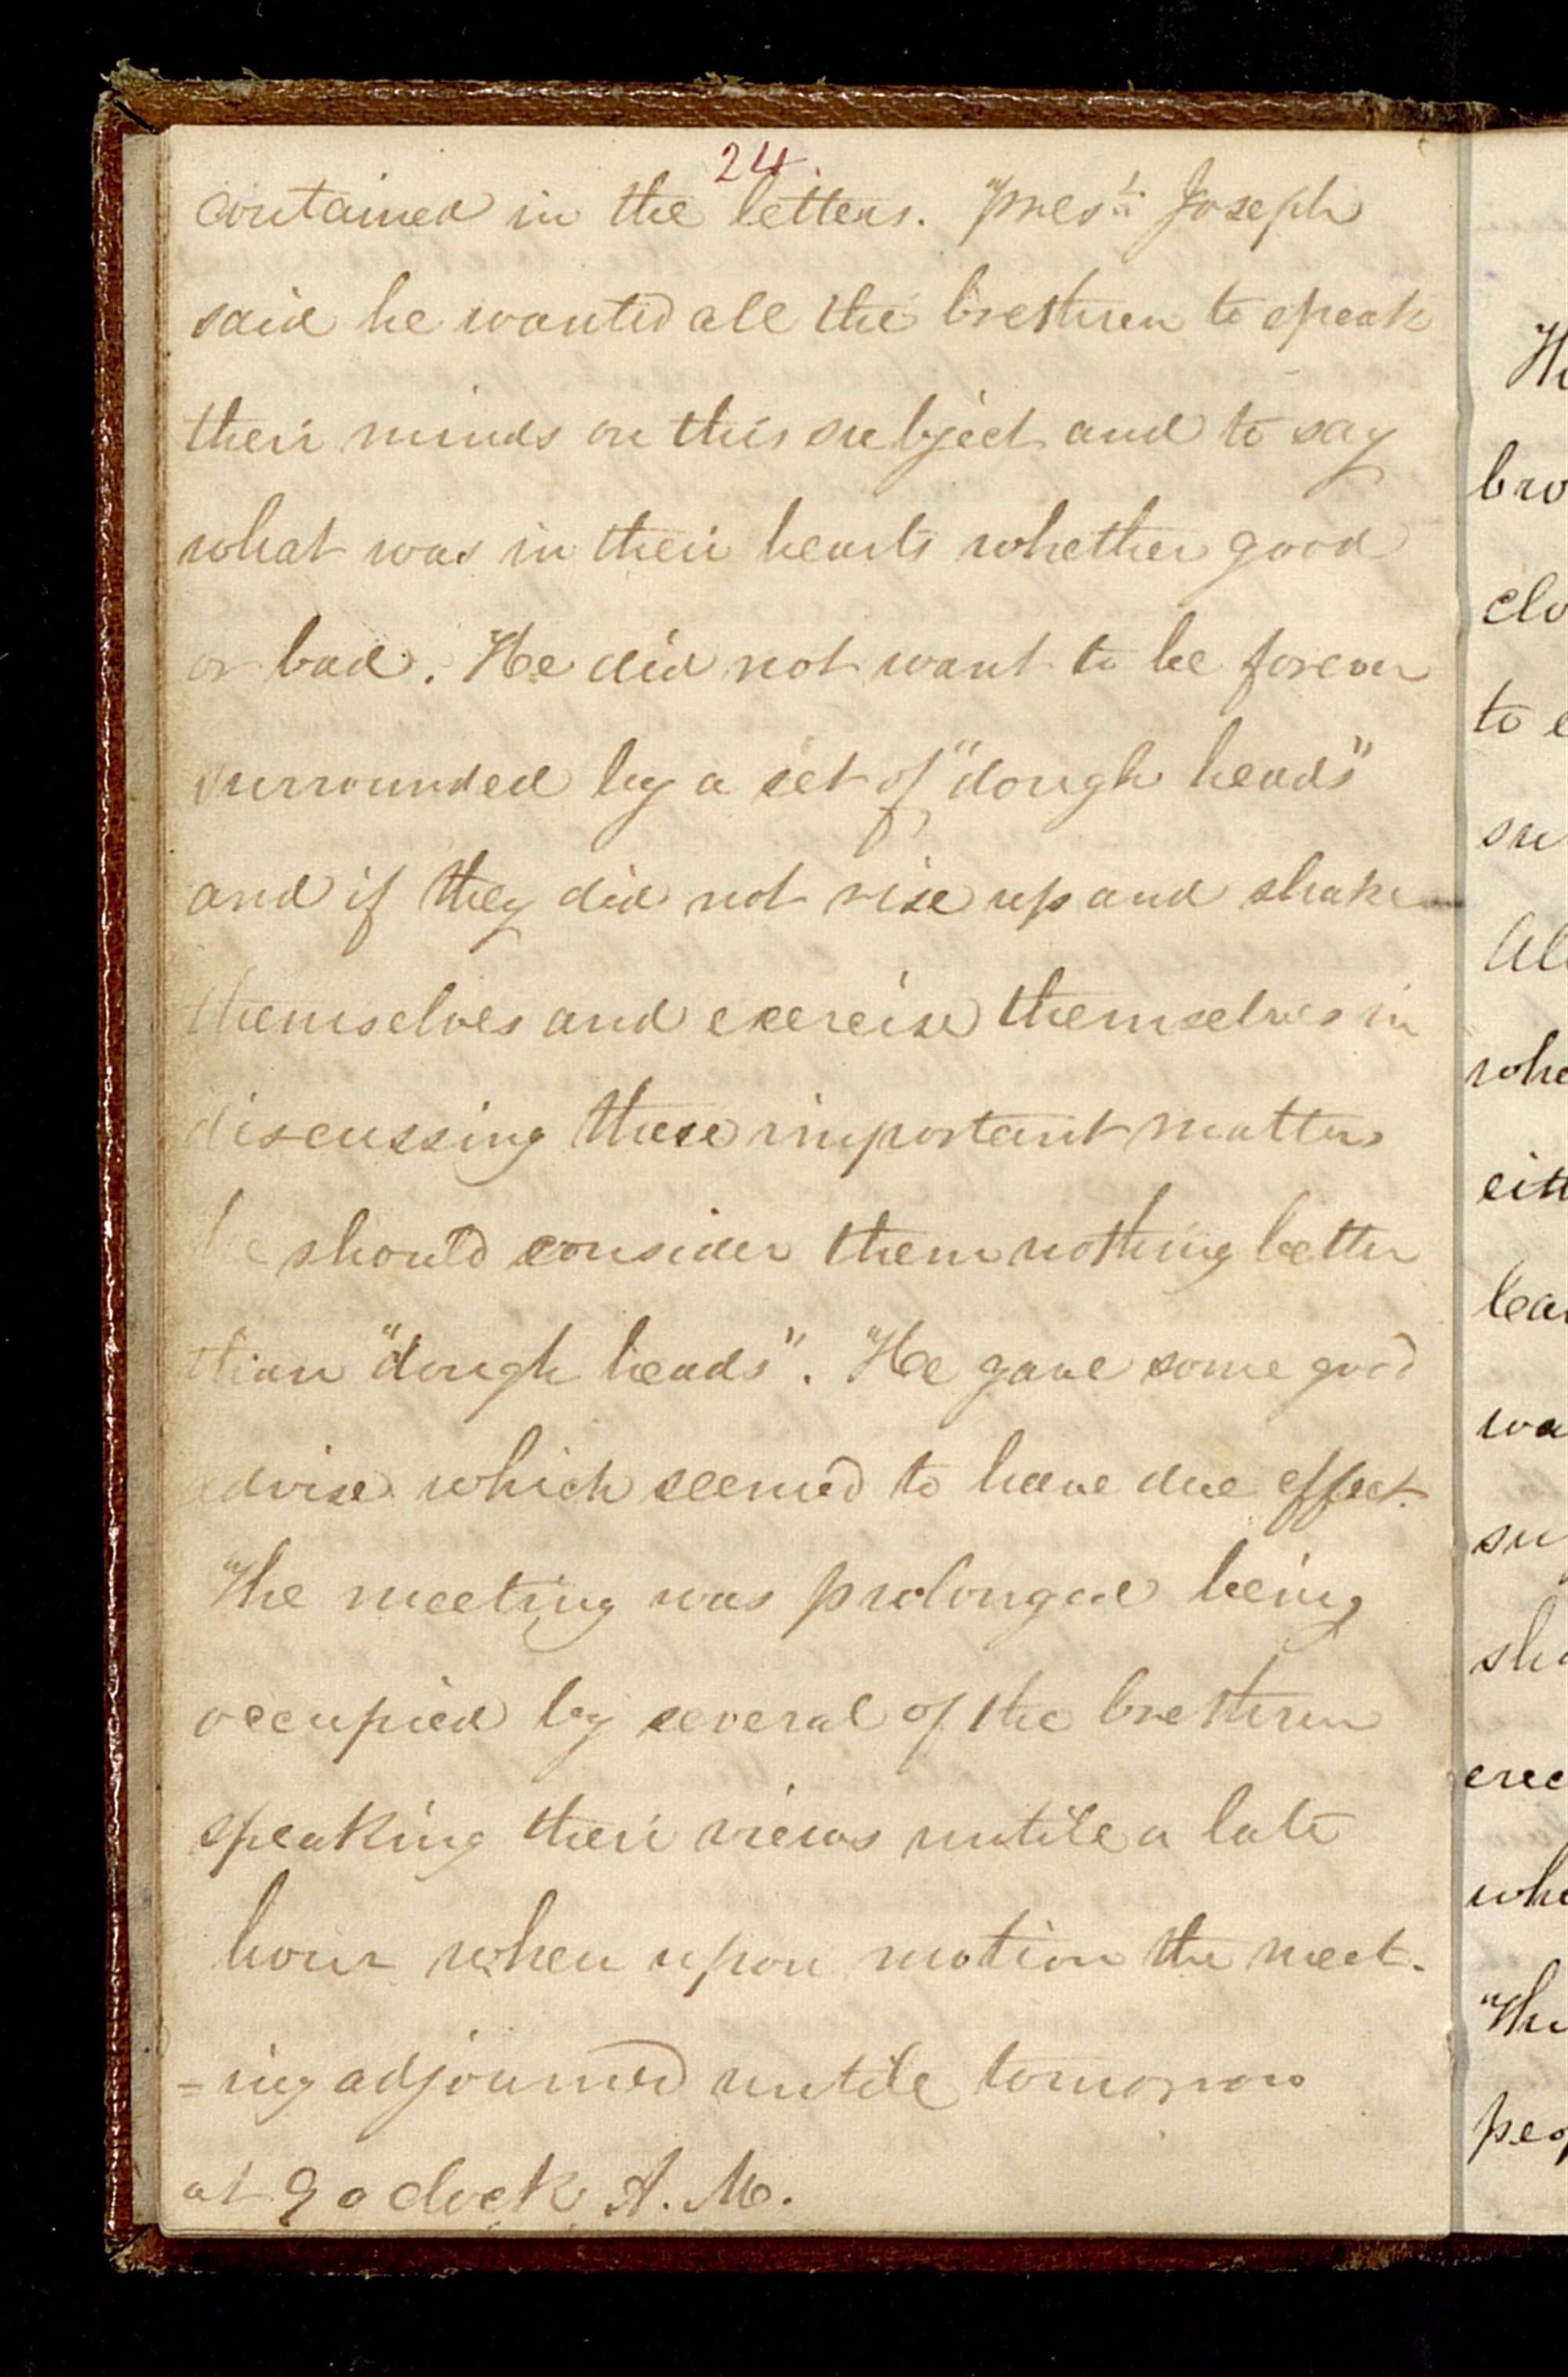 24.
contained in the letters. Pres.^t Joseph
said he wanted all the brethren to speak
their minds on this subject and to say
what was in their hearts whether good
or bad. He did not want to be forever
surrounded by a set of "dough heads"
and if they did not rise up and shake
themselves and exercise themselves in
discussing these important matters
he should consider them nothing better
than "dough heads". He gave some good
advise which seemed to have due effect.
The meeting was prolonged being
occupied by several of the brethren
speaking their views untile a late
hour when upon motion the meet-
=ing adjourned untile tomorrow
at 9 o clock A. M.
bro
clo
to e
su
All
whe
eith
lea
wa
su
sha
erec
whe
The
peo